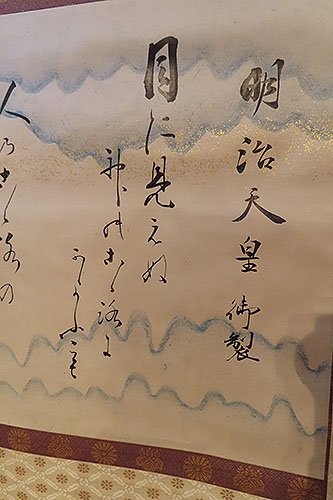 明治天皇御製
目に見えぬ
神のこゝろに
かよふこそ
人のこゝろの